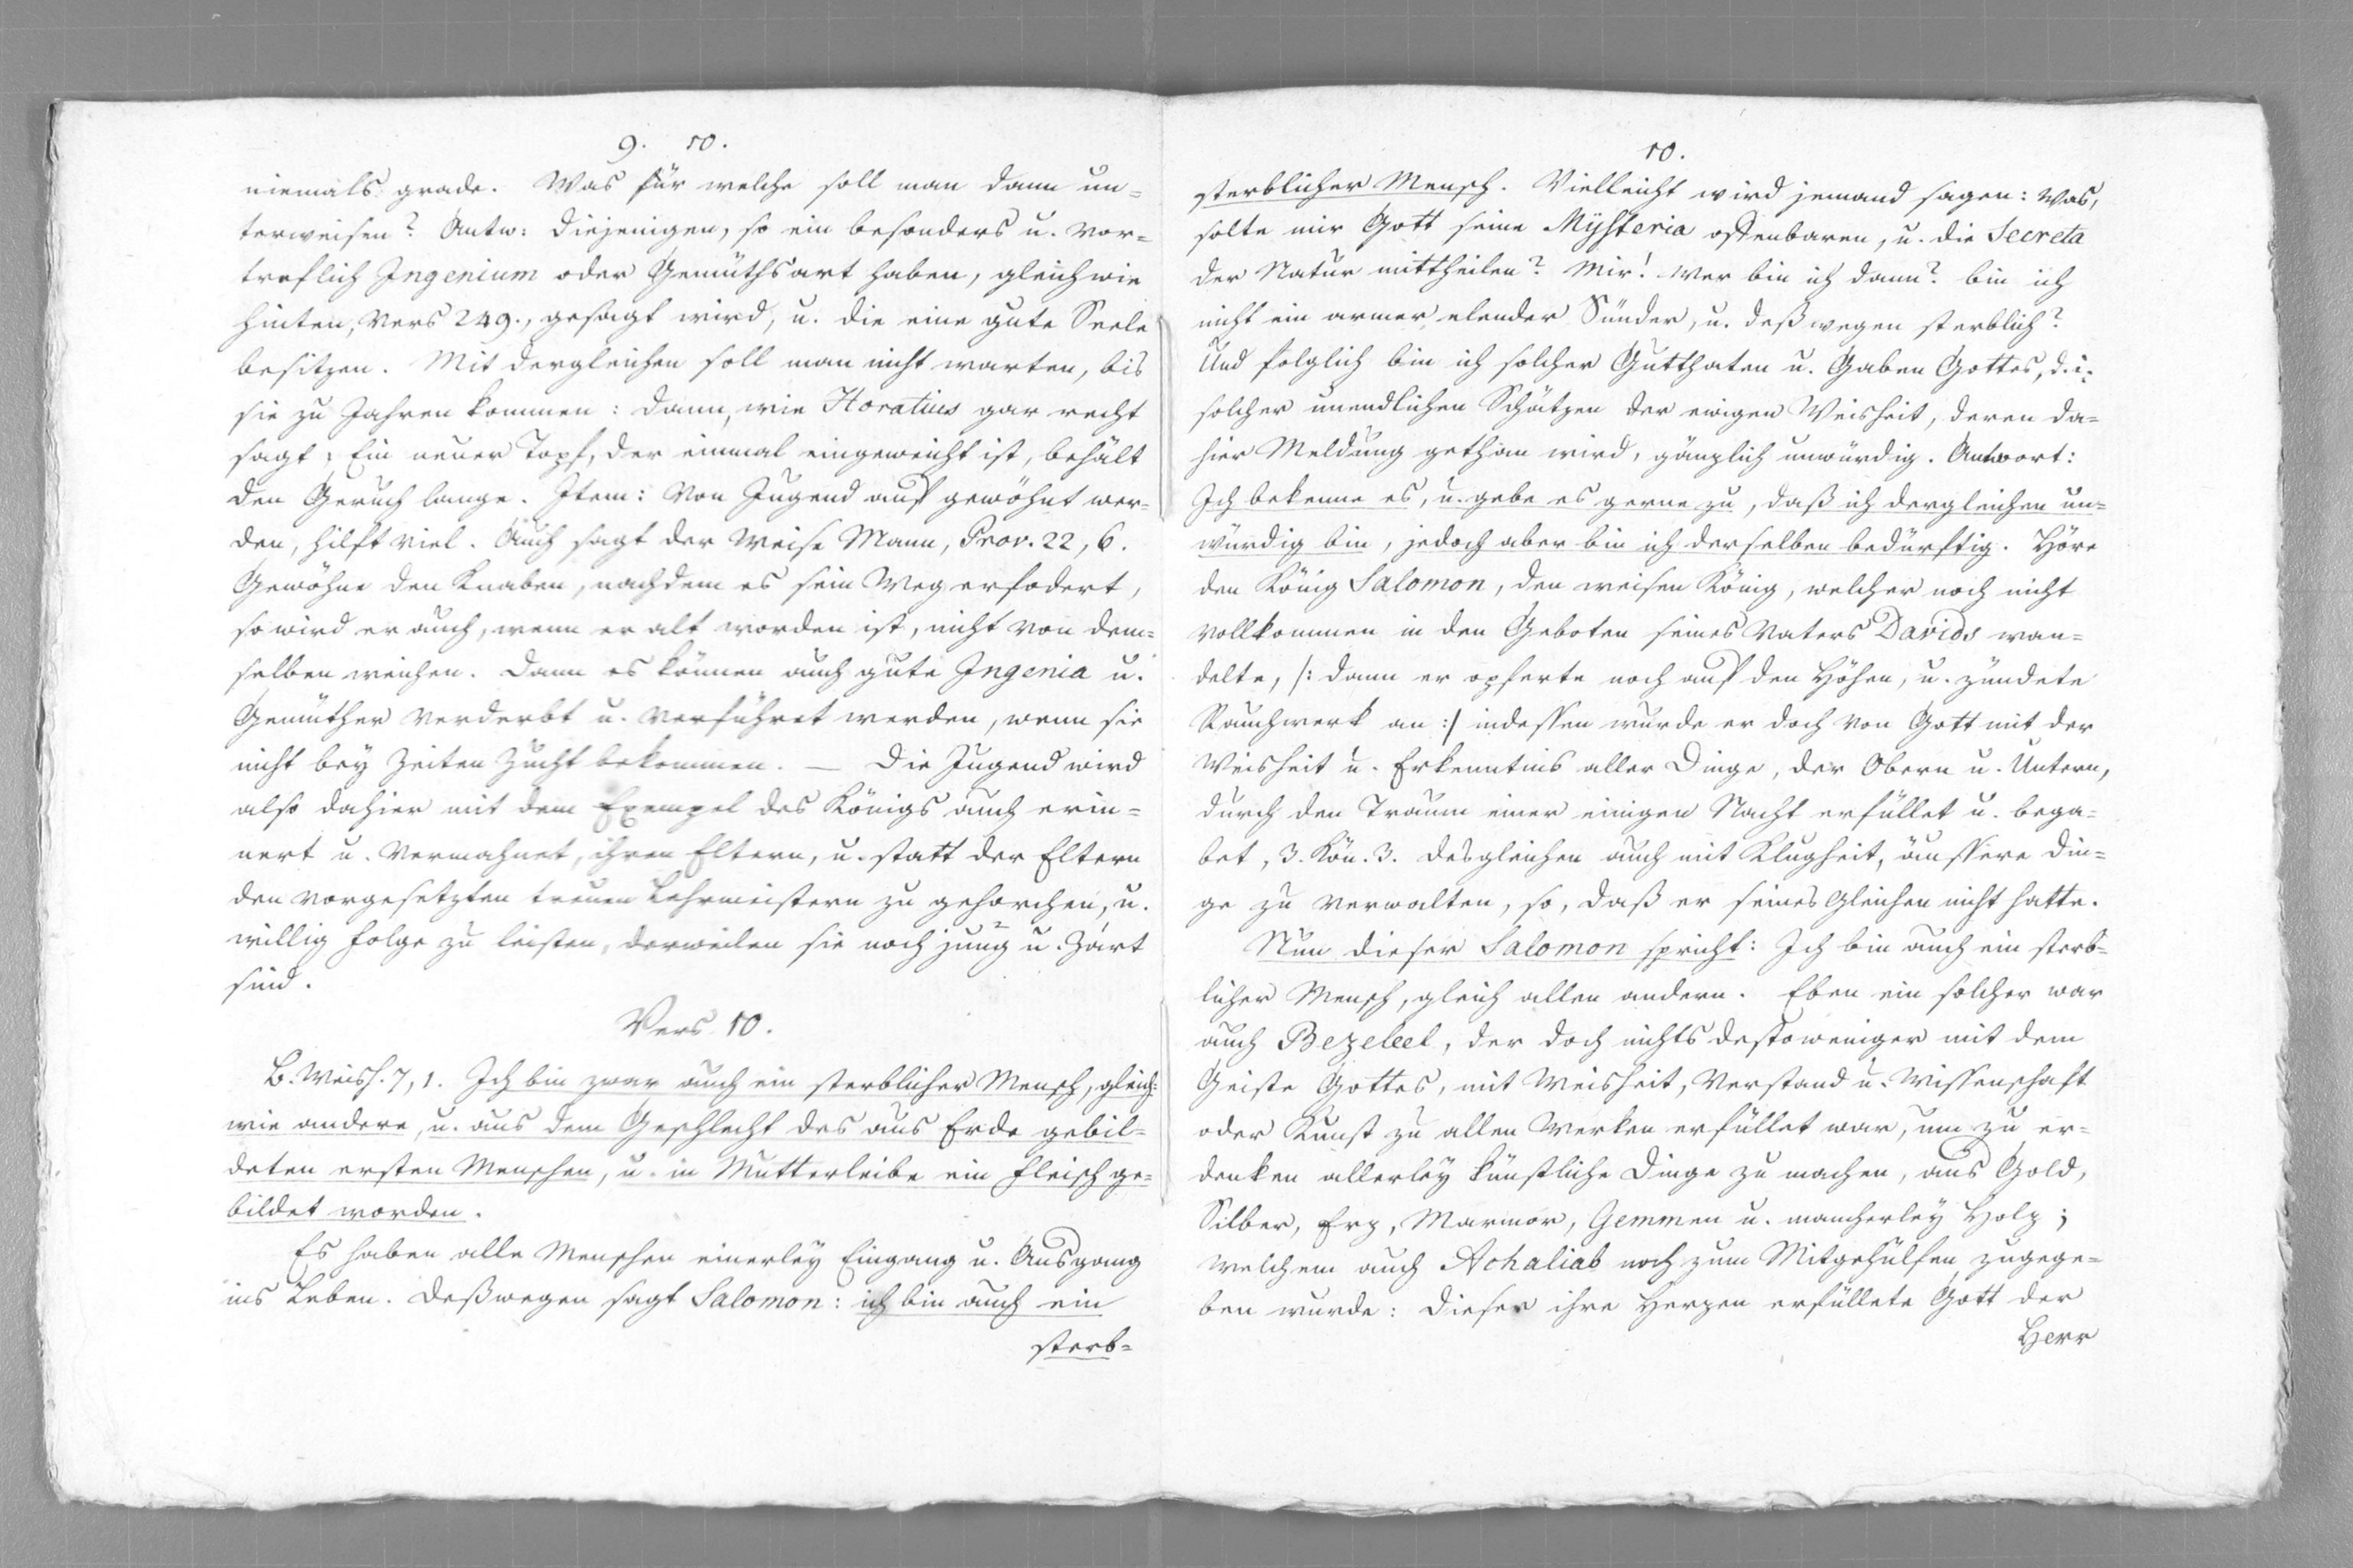 9. 10.
niemals grade. Was für welche soll man dann un=
terweisen? Antw: Diejenigen, so ein besonders u. vor=
treflich Ingenium oder Gemüthsart haben, gleichwie
hinten, Vers 249., gesagt wird, u. die eine gute Seele
besitzen. Mit dergleichen soll man nicht warten, bis
sie zu Jahren kommen: dann, wie Horatius gar recht
sagt: Ein neuer Topf, der einmal eingeweicht ist, behält
den Geruch lange. Item: Von Jugend auf gewöhnt wer=
den, hilft viel. Auch sagt der Weise Mann, Prov. 22, 6.
Gewöhne den Knaben, nachdem es sein Weg erfodert,
so wird er auch, wenn er alt worden ist, nicht von dem=
selben weichen. Dann es können auch gute Ingenia u.
Gemüther verderbt u. verführet werden, wenn sie
nicht bey Zeiten Zucht bekommen. — Die Jugend wird
also dahier mit dem Exempel des Königs auch erin=
nert u. vermahnet, ihren Eltern, u. statt der Eltern
den vorgesetzten treuen Lehrmeistern zu gehorchen, u.
willig Folge zu leisten, derweilen sie noch jung u. zart
sind.
Vers 10.
B. Weish. 7, 1. Ich bin zwar auch ein sterblicher Mensch, gleich=
wie andere, u. aus dem Geschlecht des aus Erde gebil=
deten ersten Menschen, u. in Mutterleibe ein Fleisch ge=
bildet worden.
Es haben alle Menschen einerley Eingang u. Ausgang
ins Leben. Deßwegen sagt Salomon: ich bin auch ein
sterb=
10.
sterblicher Mensch. Vielleicht wird jemand sagen: Was,
solte mir Gott seine Mysteria offenbaren, u. die Secreta
der Natur mittheilen? Mir! wer bin ich dann? bin ich
nicht ein armer elender Sünder, u. deßwegen sterblich?
Und folglich bin ich solcher Gutthaten u. Gaben Gottes, d. i.
solcher unendlichen Schätzen der ewigen Weisheit, deren da=
hier Meldung gethan wird, gänzlich unwürdig. Antwort:
Ich bekenne es, u. gebe es gerne zu, daß ich dergleichen un=
würdig bin, jedoch aber bin ich derselben bedürftig. Höre
den König Salomon, den weisen König, welcher noch nicht
vollkommen in den Geboten seines Vaters Davids wan=
delte, /: dann er opferte noch auf den Höhen, u. zündete
Rauchwerk an :/ indessen wurde er doch von Gott mit der
Weisheit u. Erkenntnis aller Dinge, der Obern u. Untern,
durch den Traum einer einigen Nacht erfüllet u. bega=
bet, 3. Kön. 3. desgleichen auch mit Klugheit, äussere Din=
ge zu verwalten, so, daß er seines Gleichen nicht hatte.
Nun dieser Salomon spricht: Ich bin auch ein sterb=
licher Mensch, gleich allen andern. Eben ein solcher war
auch Bezeleel, der doch nichts destoweniger mit dem
Geiste Gottes, mit Weisheit, Verstand u. Wissenschaft
oder Kunst zu allen Werken erfüllet war, um zu er=
denken allerley künstliche Dinge zu machen, aus Gold,
Silber, Erz, Marmor, Gemmen u. mancherley Holz;
welchem auch Achaliab noch zum Mitgehülfen zugege=
ben wurde: Dieser ihre Herzen erfüllete Gott der
Herr